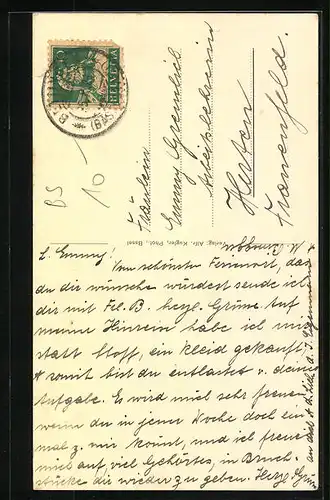 Fräulein
Emmy Greminger
Herten
Frauenfeld.
HELVETIA
BS
10
Verlag: Alfr. Kugler, Phot. Basel
L. Emmy!
Vom schönsten Ferienort, das
du dir wünschen würdest sende ich
dir mit Frl. B. herzl. Grüsse. Auf
meine Hinreise habe ich mir
statt Stoff, ein Kleid gekauft
& somit bist du entlastet v. deiner
Aufgabe. Es wird mich sehr freuen
wenn du in jener Woche doch ein-
mal z. mir kommst, und ich freue
mich auf, viel Gehörtes, in Bruch-
stücke dir wieder zu geben. Herzl. Grüsse
an dich &